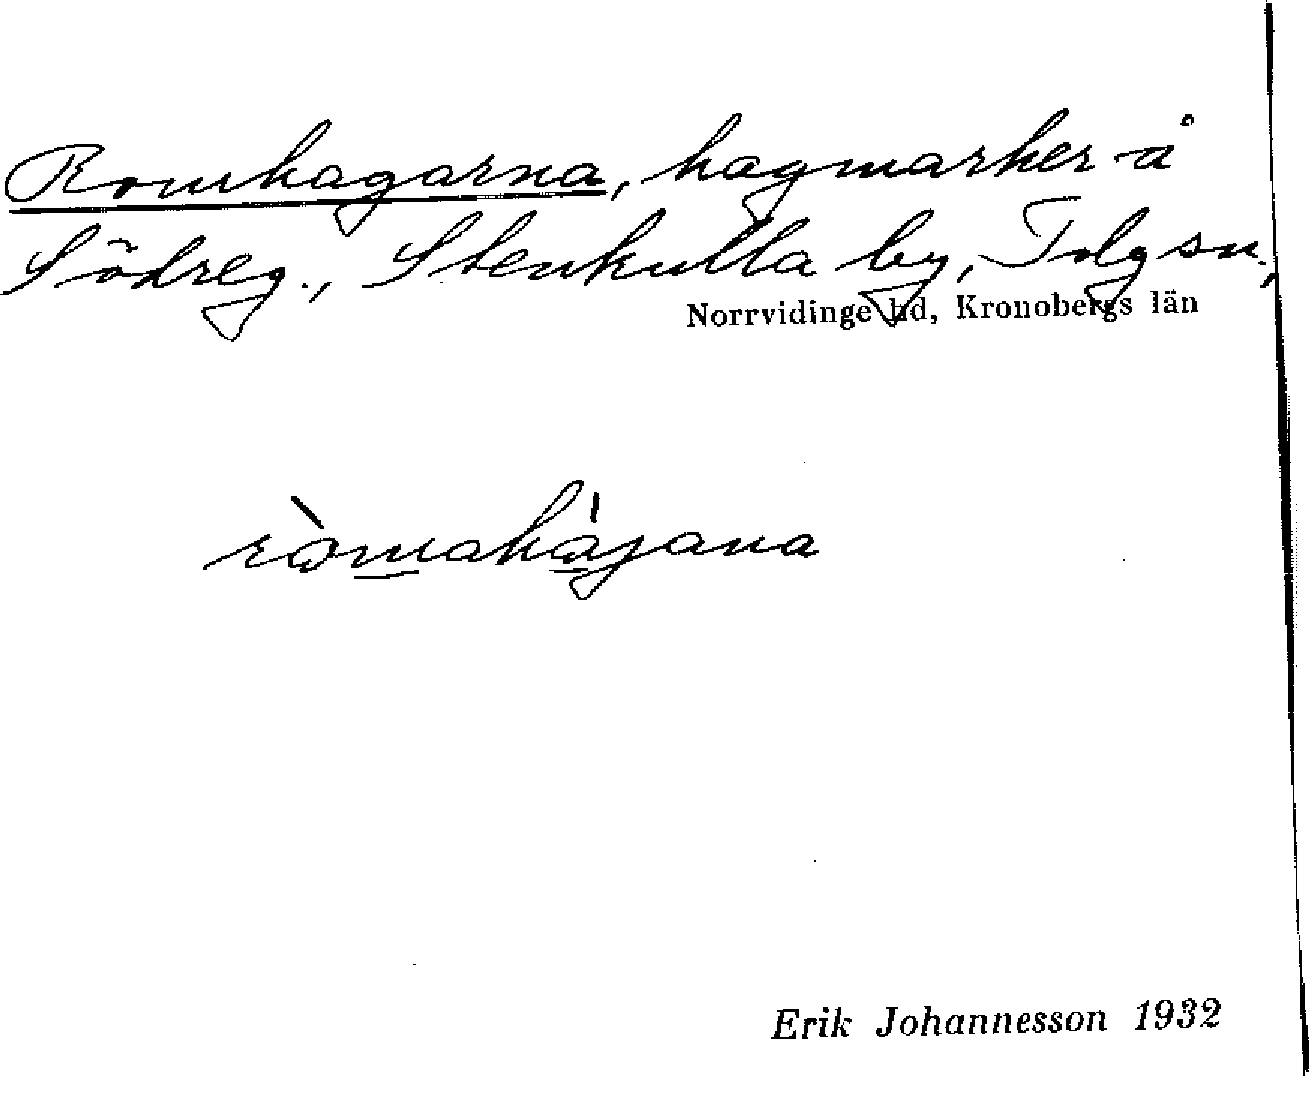 Romhagarna, hagmarker å
Södreg., Stenkulla by, Tolg sn.,
Norrvidinge hd, Kronobergs län
ròmahágana
Erik Johannesson 1932